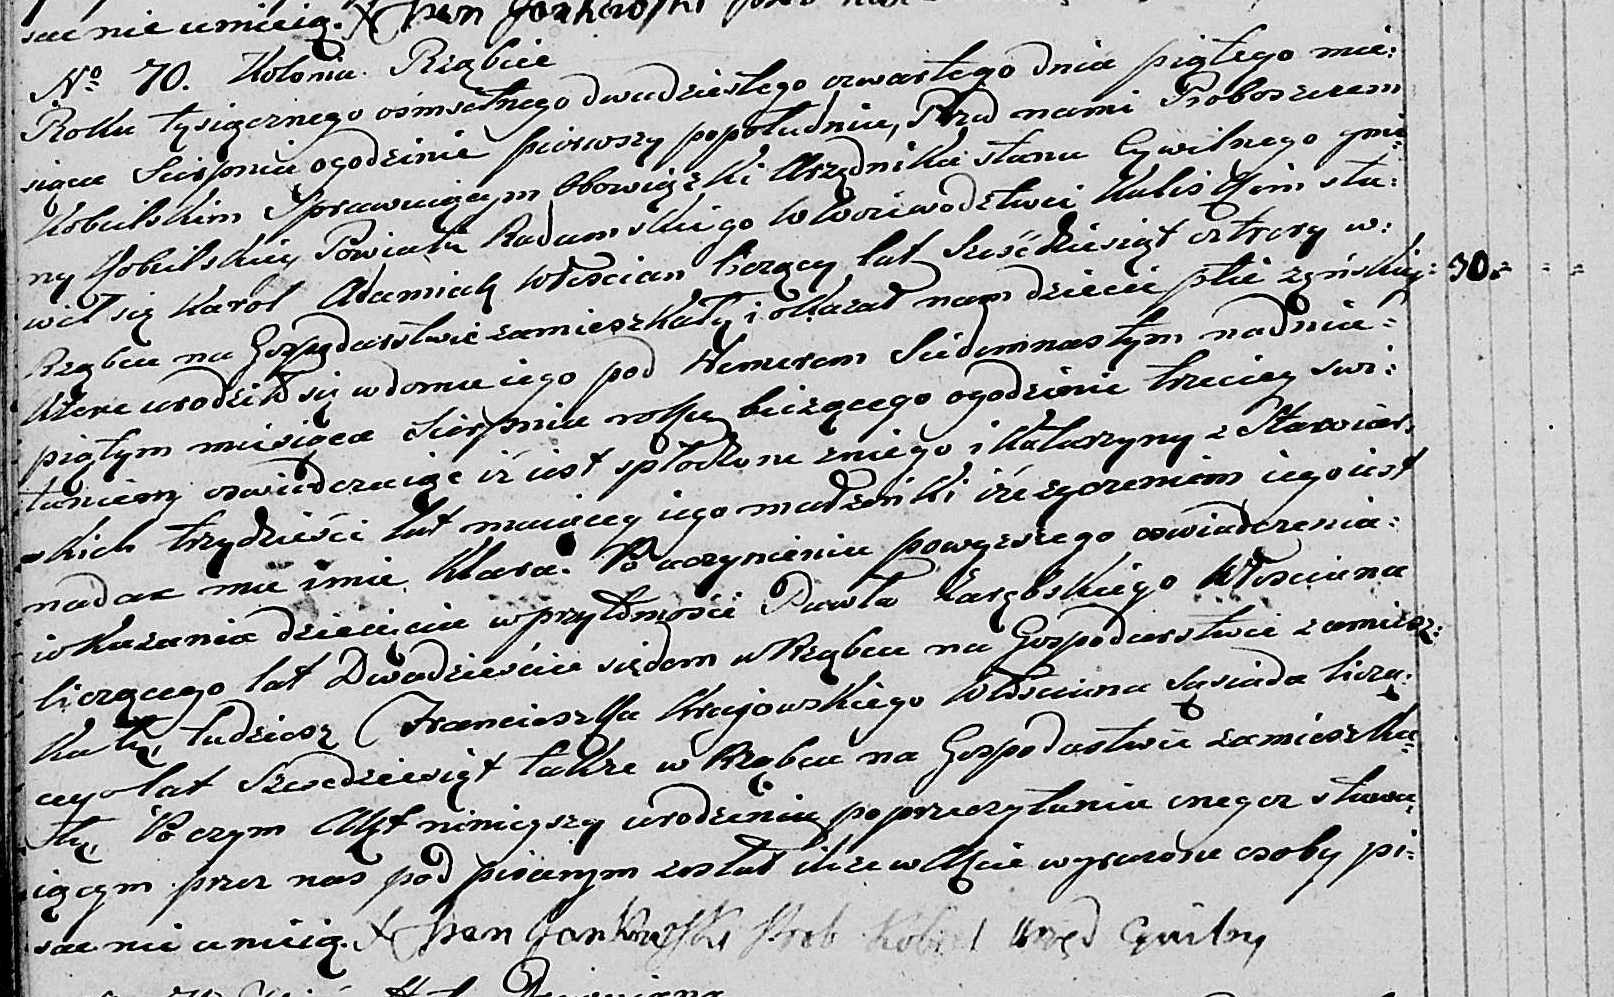 sac nie umieią. X Jan Jankowski
No 70. Kolonia Rząbiec
Roku tysiącznego ośmsetnego dwudziestego czwartego dnia piątego mie:
siąca Sierpnia ogodzinie pierwszy popołudniu, Przed nami Proboszczem
Kobielskim Sprawuiącym Obowiązki Urzędnika stanu Cywilnego gmi:
ny Kobielskiey Powiatu Radomskiego w Woiewodztwie Kaliskim sta:
wił się Karol Adamiak Włoscian liczący lat Sześćdziesiąt cztery w:
Rząbcu na Gospodarstwie zamieszkały i okazał nam dziecie płci żeńskiey: 70.
które urodziło się w domu iego pod Numerem Siedmnastym nadniu:
piątym miesiąca Sierpnia roku bieżącego ogodzinie trzeciey swi:
taniem oswiadczaiąc iż iest spłodzone zniego i Katarzyny z Stawiar:
skich trzydzieści lat maiącey iego małżonki i że życzeniem iego iest
nadac mu imie Klara. Po uczynieniu powyższego oswiadczenia:
i okazania dziecięcia w przytomości Pawła Zarębskiego Włosciana
liczącego lat Dwadzieścia siedem w Rząbcu na Gospodarstwie zamiesz:
kały, tudziesz Franciszka Krajowskiego Włościana Sąsiada liczą:
cego lat Sześcdziesiąt także w Rząbcu na Gospodastwie zamieszka:
ły, Po czym Akt niniejszy urodzenia po przeczytaniu onegoż stawa:
iącym przez nas podpisanym został ile że w Akcie wyrażone osoby pi:
sac nie umieią. X Jan Jankowski Prob Kobiel Urzęd Cywilny